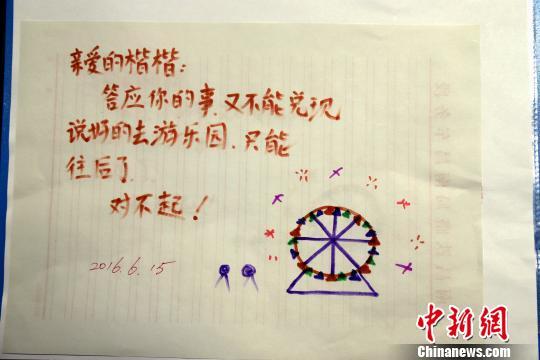 亲爱的楷楷：
答应你的事又不能兑现
说好的去游乐园、只能
往后了
对不起！
2016.6.15
中新网
Chinanews.com